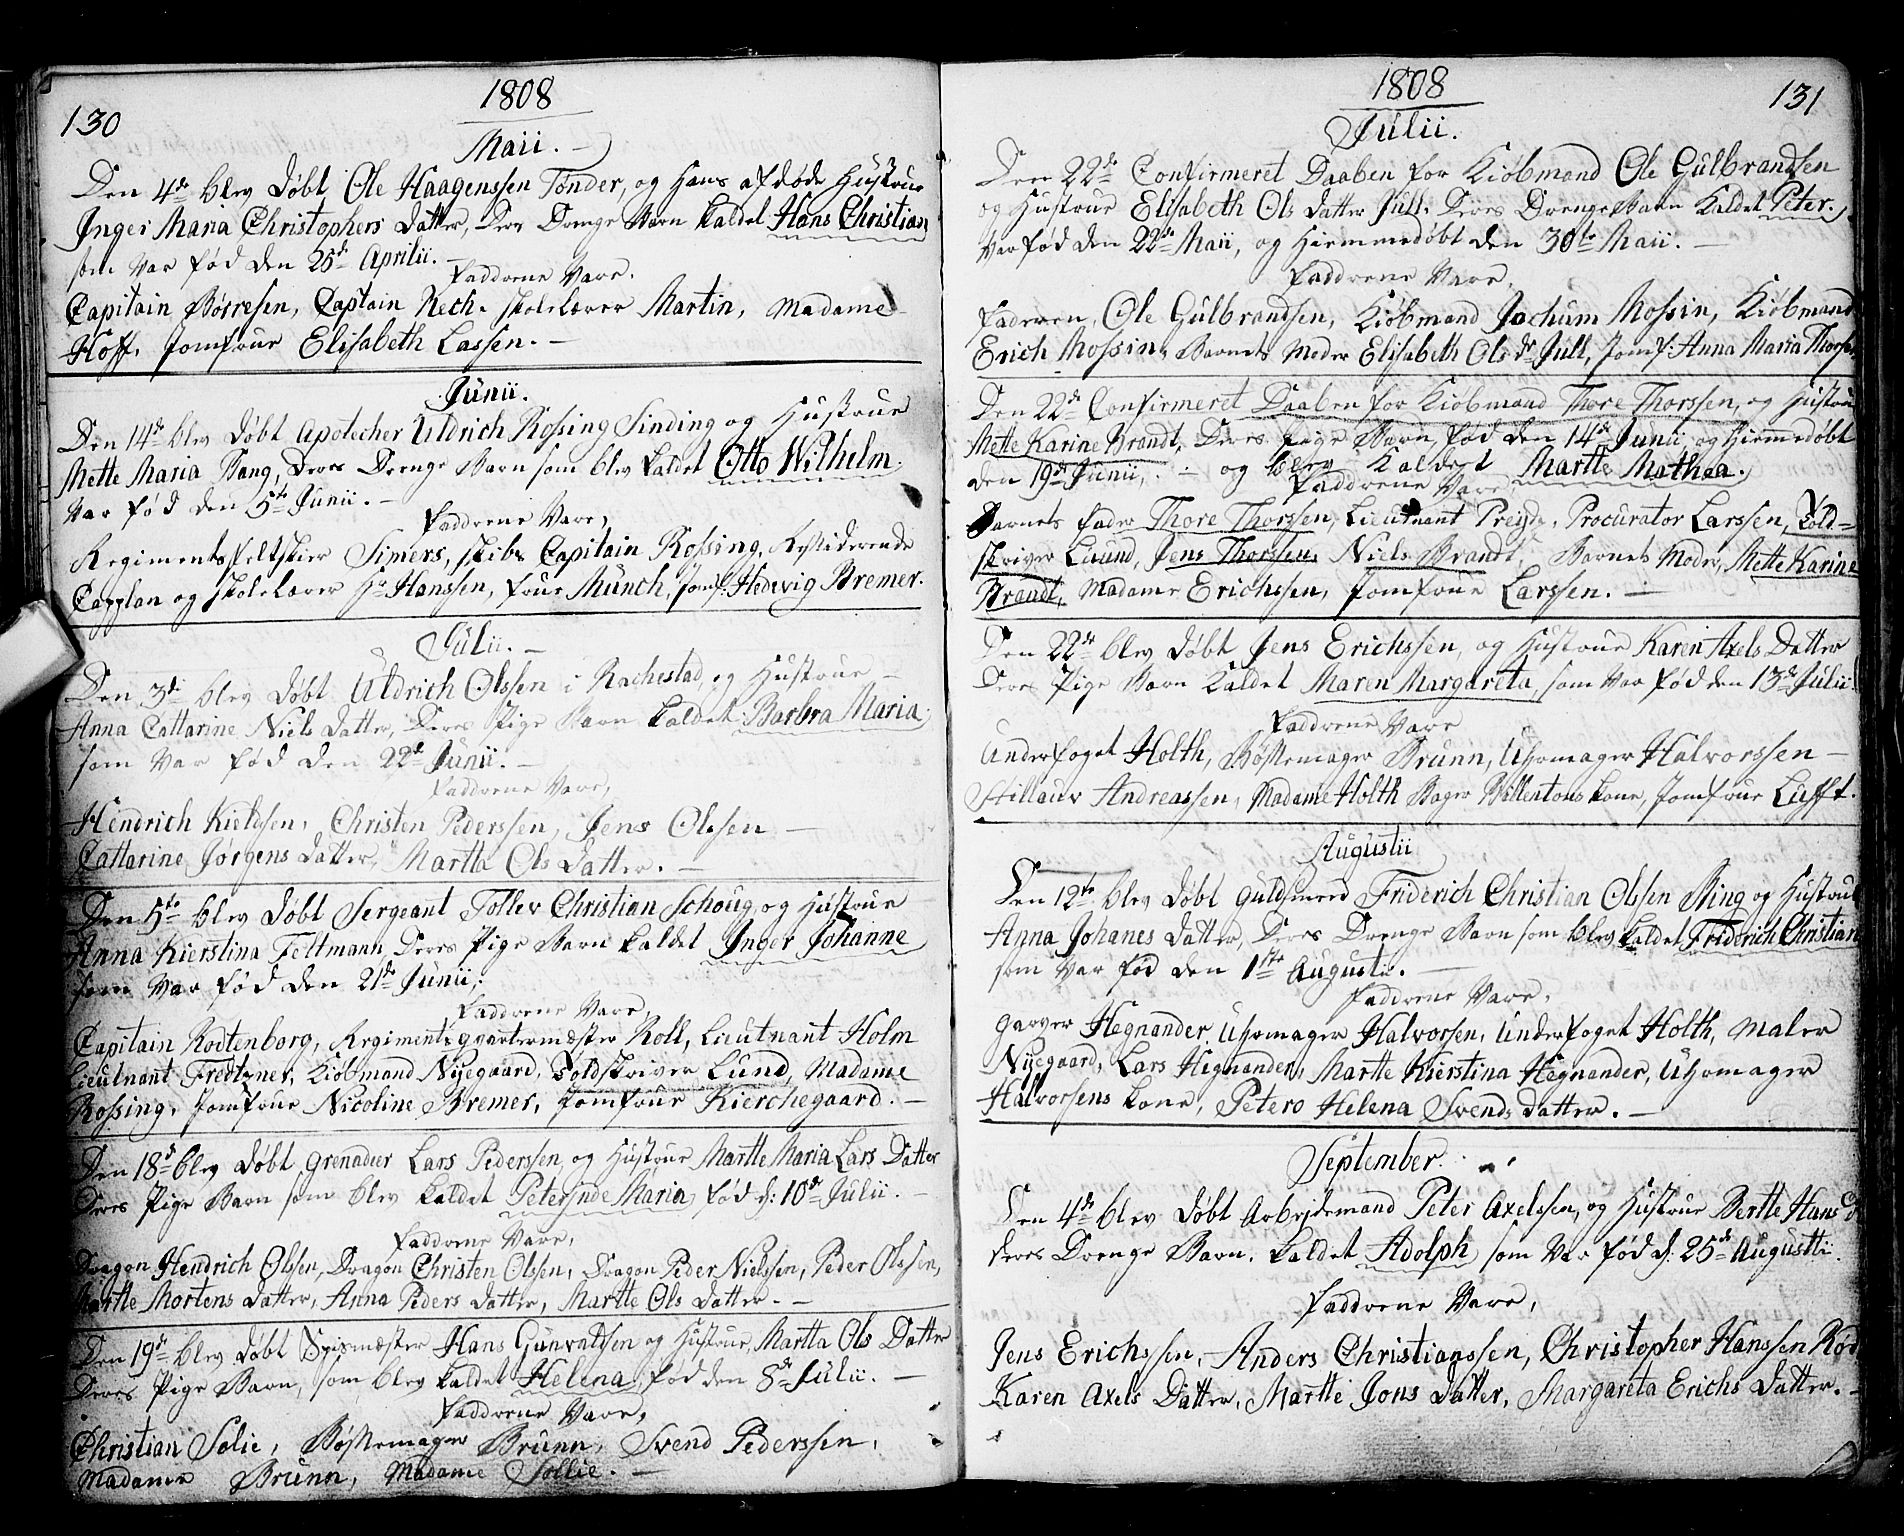 130
1808
Maii. –
Den 4de blev døbt Ole Haagenssen Tønder, og Hans afdøde Hustrue
Inger Maria Christophers Datter, Deres Drenge Barn kaldet Hans Christian,
som var fød den 25de Aprilii. –
Faddrene Vare.
Capitain Børresen, Captain Nech. Skolelærer Martin, Madame
Hoff, Jomfrue Elisabeth Lassen. –
Junii.
Den 14de blev døbt Apotecher Uldrich Rossing Sinding og Hustrue
Mette Maria Bang, Deres Drenge Barn som blev kaldet Otto Wilhelm,
var fød den 5te Junii. –
Faddrene Vare,
Regimentsfeltskier Simers, Skibs Capitain Rossing, Residerende
Capplan og Skolelærer Hr Hanssen, Frue Münch, Jomf: Hedevig Bremer.
Julii. –
Den 3de blev døbt Uldrich Olssen i Rachestad og Hustrue –
Anna Cattarine Niels Datter, Deres Pige Barn kaldet Barbra Maria,
som var fød den 22de Junii. –
Faddrene Vare,
Hendrich Kieldsen, Christen Pederssen, Jens Olssen –
Cattarine Jørgens Datter, Martta Ols Datter. –
Den 5te blev døbt Sergeant Tollev Christian Schoug og Hustrue
Anna Kierstina Feltmann, Deres Pige Barn kaldet Inger Johanne
som var fød den 21de Junii,
Faddrene Vare,
Capitain Rodtenborg, Regimentsqvartermæster Roll, Lieutnant Holm
Lieutnant Fredtzner, Kiøbmand Nyegaard, Toldskriver Lund, Madame
Rossing, Jomfrue Nicoline Bremer, Jomfrue Kierchegaard. –
Den 18de blev døbt Grenadier Lars Pederssen og Hustrue Martte Maria Lars Datter
Deres Pige Barn som blev kaldet Petersnde Maria, fød d: 10de Julii. –
Faddrene Vare,
Dragon Hendrich Olssen, Dragon Christen Olssen, Dragon Peder Nielssen, Peder Olssen,
Martte Mortens Datter, Anna Peders Datter, Martte Ols Datter. –
Den 19de blev døbt Spismæster Hans Gunvaldsen og Hustrue Martta Ols Datter
Deres Pige Barn, som blev kaldet Helena, fød den 8de Julii. –
Faddrene Vare,
Christian Solie, Bøssemager Brunn, Svend Pederssen,
Madame Brunn, Madame Sollie. –
1808
131
Julii.
Den 22de Confirmeret Daaben for Kiøbmand Ole Gulbrandsen
og Hustrue Elisabeth Ols Datter Jull, Deres Drenge Barn kaldet Peter,
var fød den 22de Maii, og Hiemmedøbt den 30te Maii. –
Faddrene Vare,
Faderen, Ole Gulbrandsen, Kiøbmand Jochum Mossin, Kiøbmand
Erich Mossin, Barnets Moder Elisabeth Ols dr Jull, Jomf: Anna Maria Thorsen
Den 22de Confirmeret Daaben for Kiøbmand Thore Thorssen, og Hustrue
Mette Karine Brandt, Deres Pige Barn, fød den 14de Junii og Hiemmedøbt
den 19de Junii, – og blev kaldet Martte Mathea.
Faddrene Vare,
Barnets Fader Thore Thorssen, Lieutnant, Procurator Larssen, Told=
skriver Lund, Jens Thorssen, Niels Brandt, Barnets Moder, Mette Karine
Brandt, Madame Erichssen, Jomfrue Larssen. –
Den 22de blev døbt Jens Erichssen, og Hustrue Karen Axels Datter
Deres Pige Barn kaldet Maren Margareta, som var fød den 13de Julii.
Faddrene Vare
Underfoget Holth, Bøssemager Brunn, Uhrmager Halvorssen –
Andreassen, Madame Holth, Bager Willentons kone, Jomfrue Lufft.
Augustii
Den 12te blev døbt Guldsmed Friderich Christian Olssen Bing og Hustrue
Anna Johanes Datter, Deres Drenge Barn som blev kaldet Friderich Christian
som var fød den 1ste Augustii. –
Faddrene Vare,
Garver Hegnander, Uhrmager Halvorsen, Underfoget Holth, Maler
Nyegaard, Lars Hegnander, Martte Kierstina Hegnander, Uhrmager
Halvorsens kone, Petero Helena Svends Datter. –
September.
Den 4de blev døbt Arbejdsmand Peter Axelssen, og Hustrue Bertte Hans d
deres Drenge Barn, kaldet Adolph, som var fød d: 25de Augustii.
Faddrene Vare,
Jens Erichssen, Anders Christianssen, Christopher Hanssen Rød
Karen Axels Datter, Martte Jons Datter, Margareta Erichs Datter. –